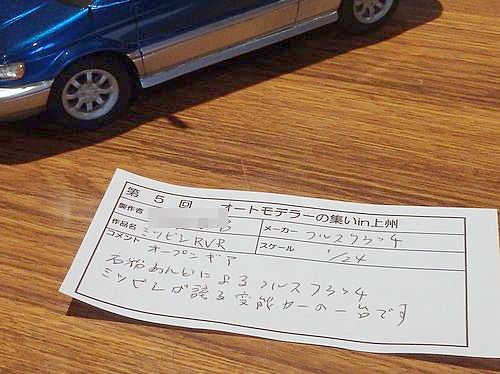 第 5 回 オートモデラーの集い in 上州
製作者
メーカー フルスクラッチ
作品名 ミツビシ RVR
オープンギア
スケール 1/24
コメント
石粉ねんどによるフルスクラッチ
ミツビシが誇る変態カーの一台です